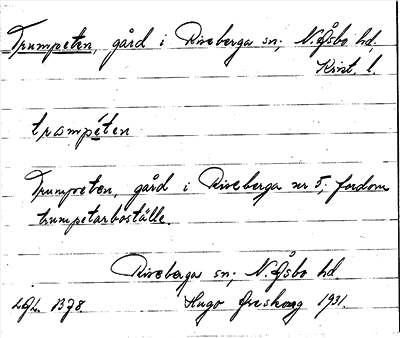 Trumpeten, gård i Riseberga sn; N. Åsbo hd,
Krist. l.
trompéten
Trumpeten, gård i Riseberga nr 5; fordom
trumpetarboställe.
Riseberga sn; N. Åsbo hd.
Hugo Areskoug 1931.